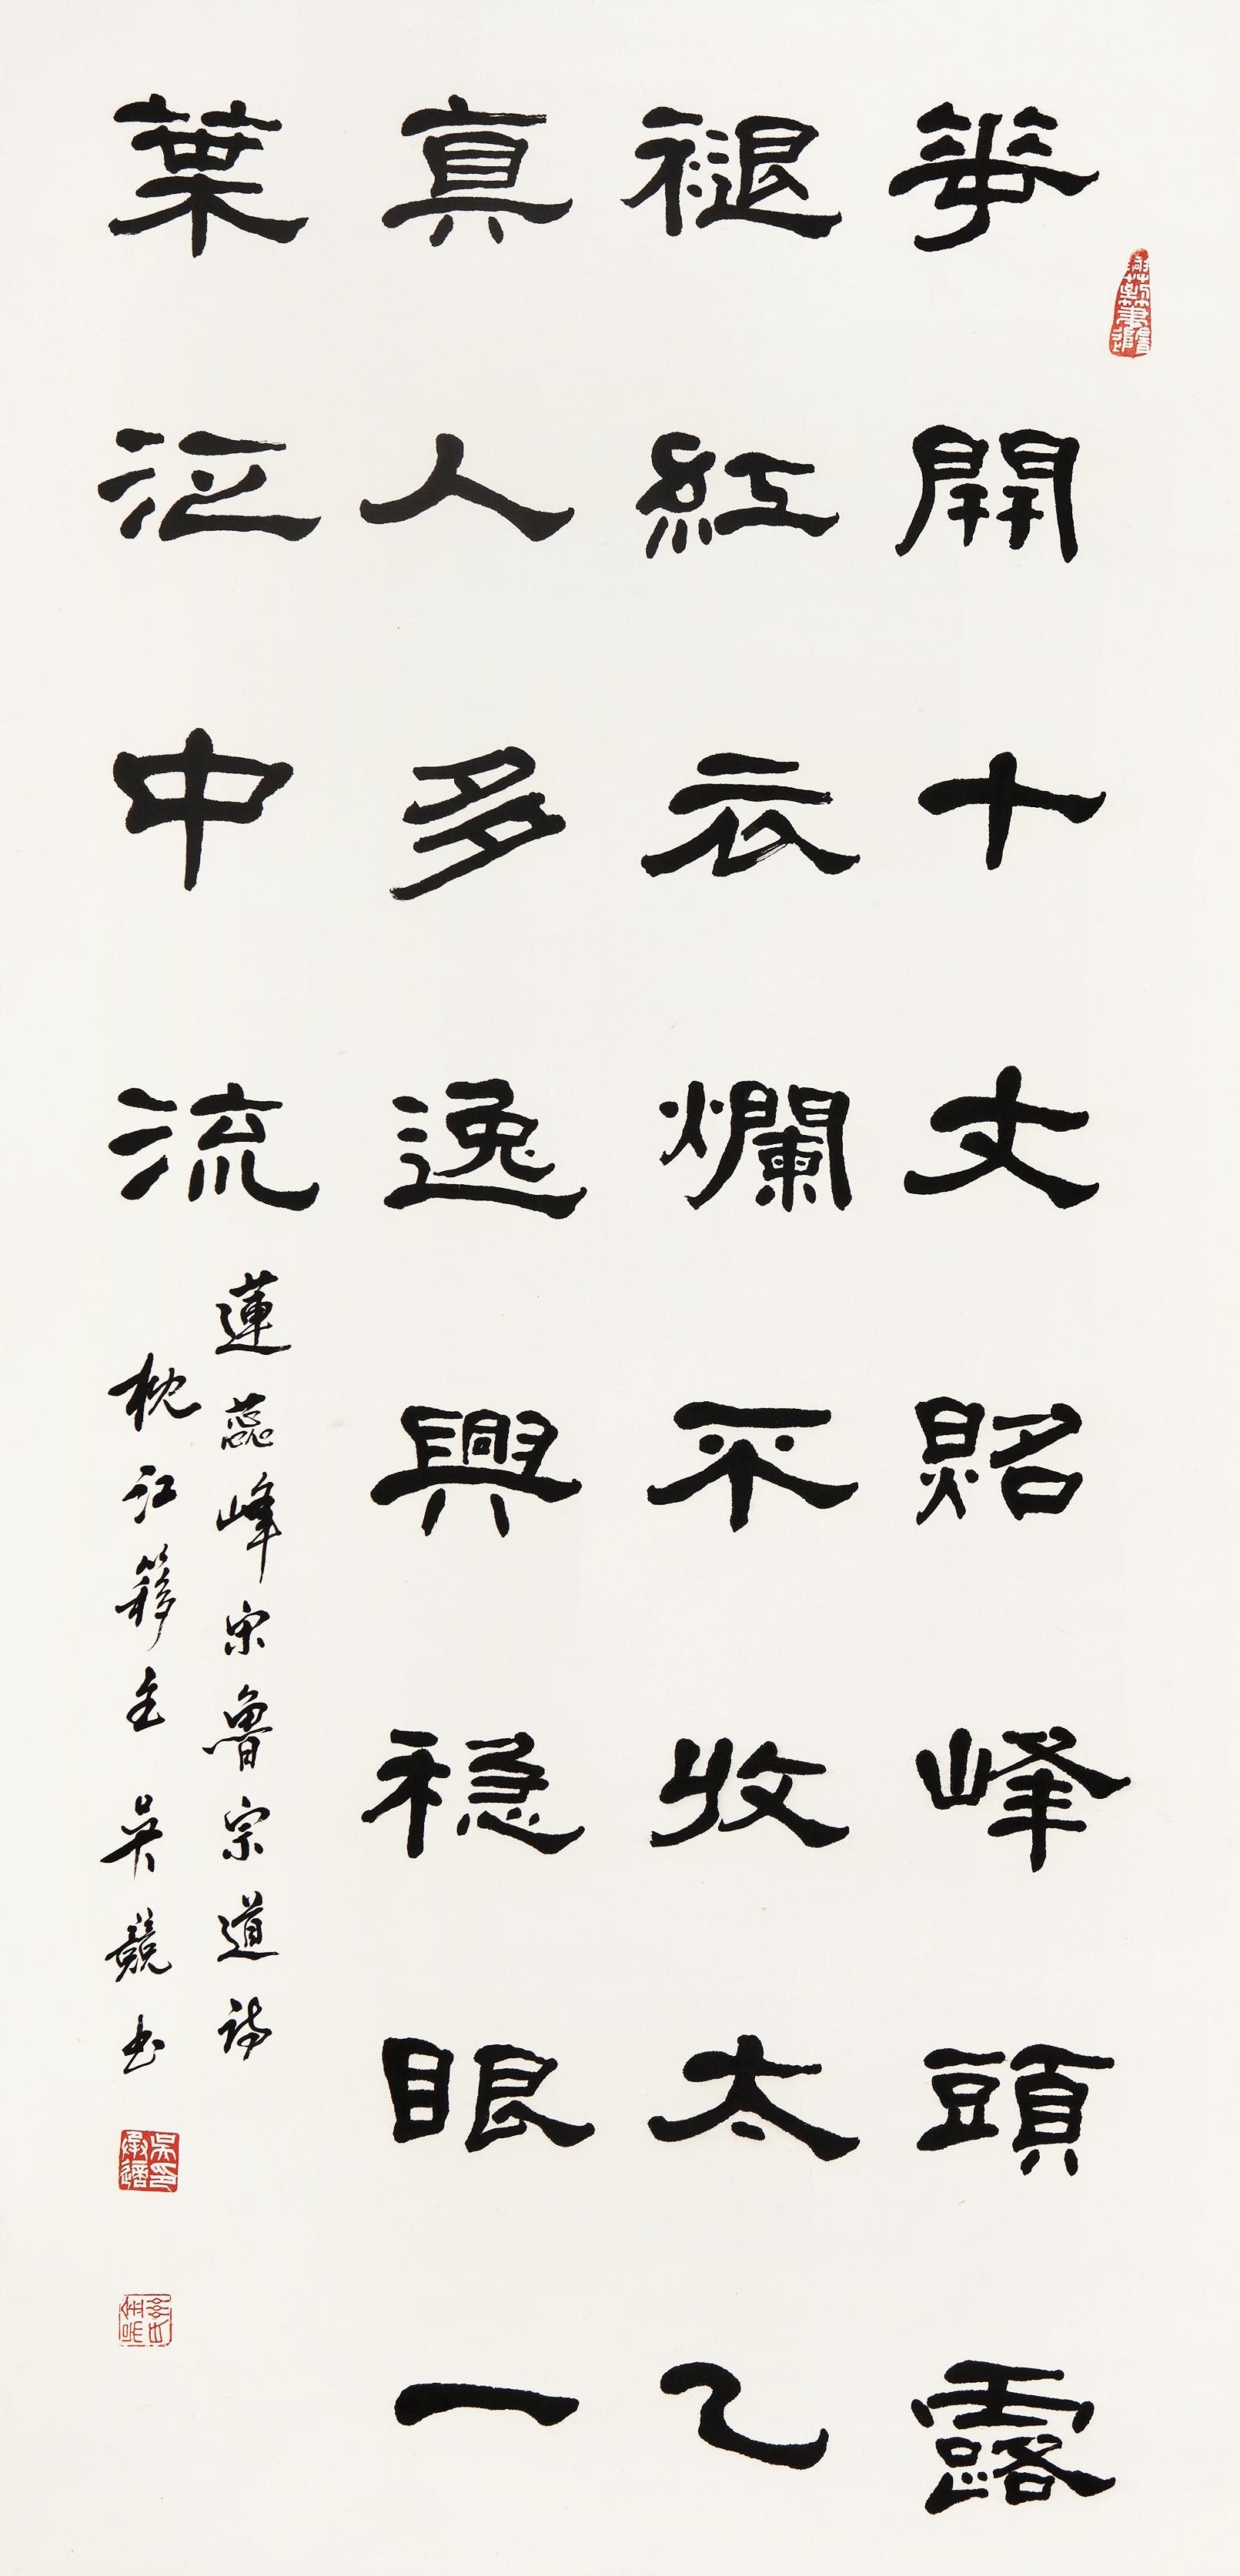 華開十丈照峰頭露
褪紅衣爛不收太乙
真人多逸興穩眠一
葉泛中流
蓮蕊峰宋魯宗道詩
枕江簃主吳競書